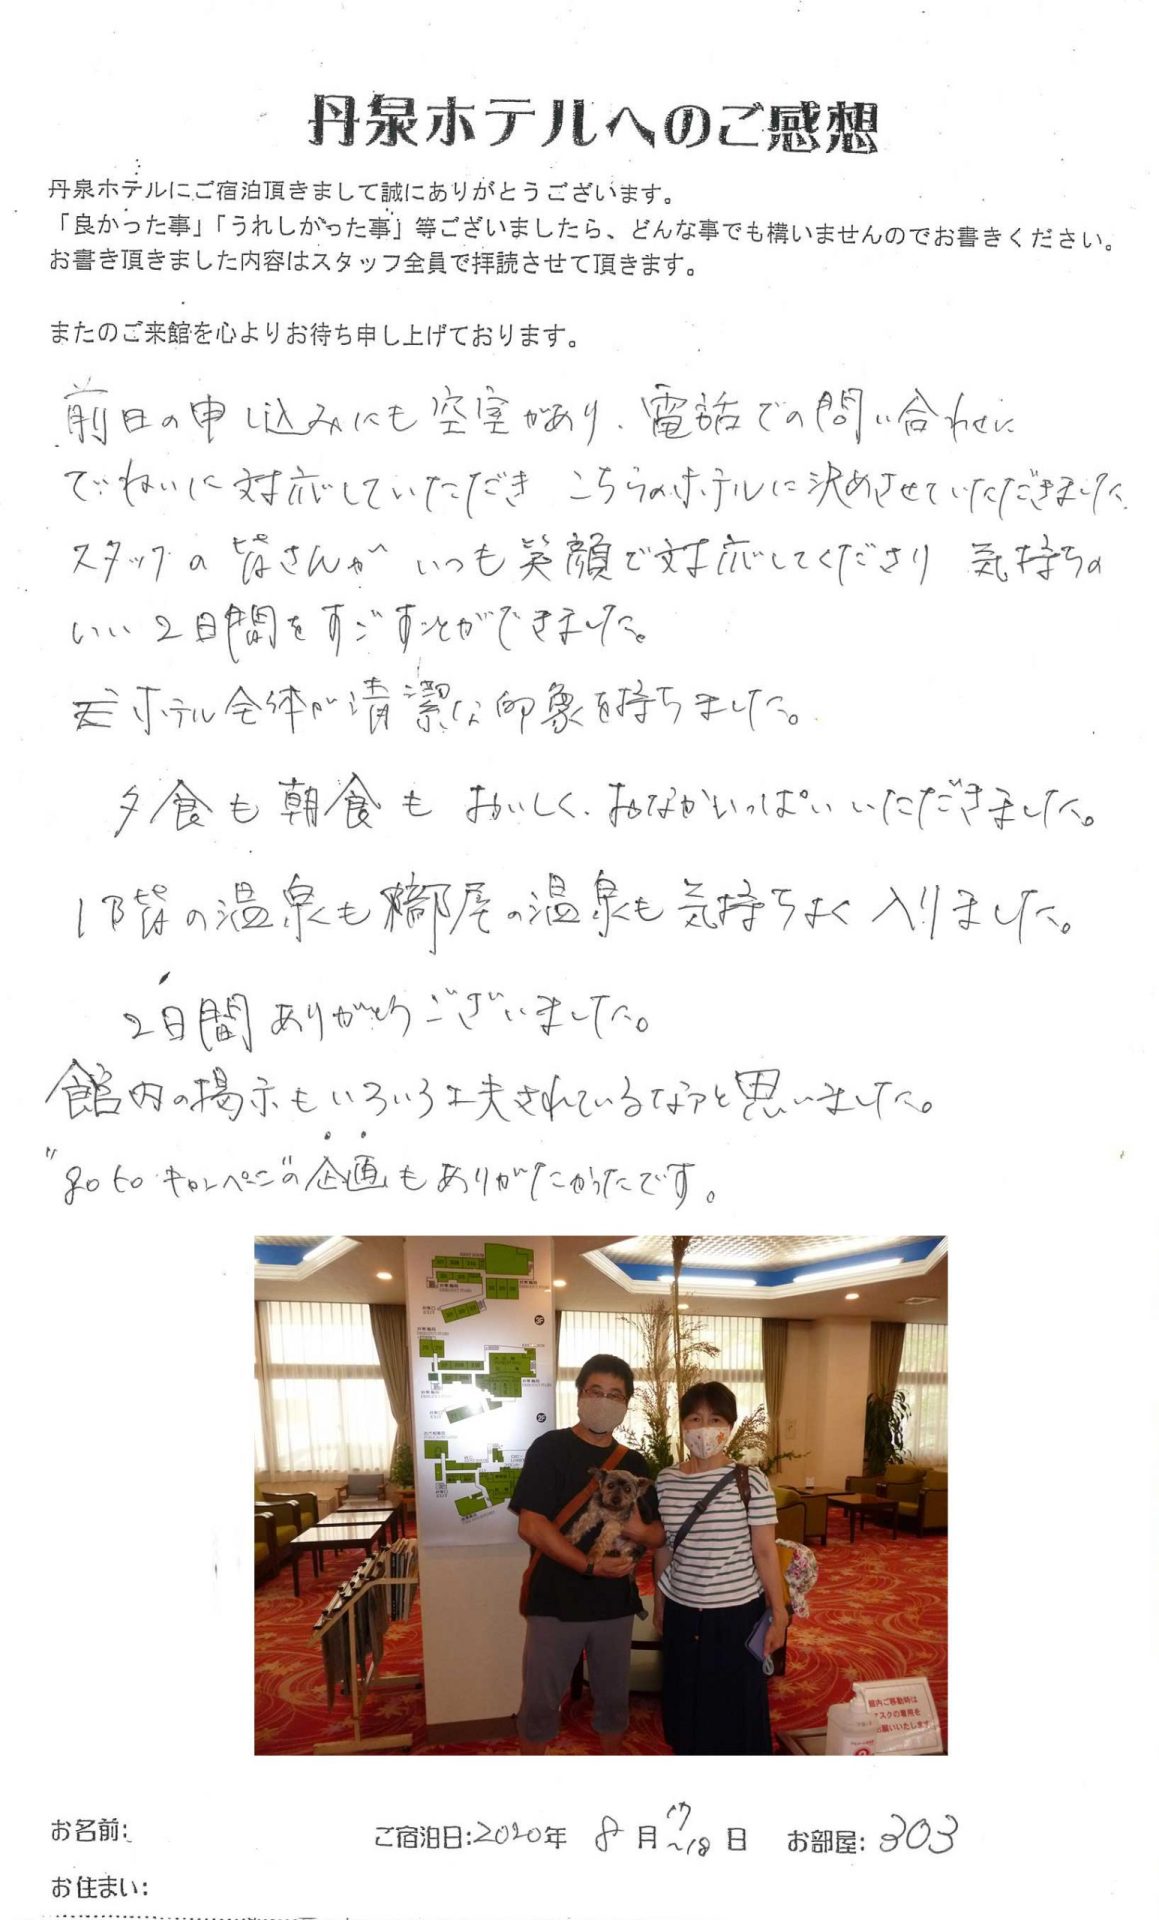 丹泉ホテルへのご感想
丹泉ホテルにご宿泊頂きまして誠にありがとうございます。
「良かった事」「うれしかった事」等ございましたら、どんな事でも構いませんのでお書きください。
お書き頂きました内容はスタッフ全員で拝読させて頂きます。
またのご来館を心よりお待ち申し上げております。
前日の申し込みにも空室があり、電話での問い合わせに
ていねいに対応していただき こちらのホテルに決めさせていただきました
スタッフの皆さんが いつも笑顔で対応してくださり 気持ちの
いい2日間をすごすことができました。
ホテル全体が清潔な印象を持ちました。
夕食も朝食も おいしく、おなかいっぱいいただきました。
1階の温泉も 部屋の温泉も気持ちよく入りました。
2日間ありがとうございました。
館内の掲示もいろいろ工夫されているなァと思いました。
"goto キャンペーン"の企画もありがたかったです。
3F
2F
館内ご移動時は
マスクの着用を
お願いいたします
お名前:
ご宿泊日:2020年 8月17~18日 お部屋: 303
お住まい: